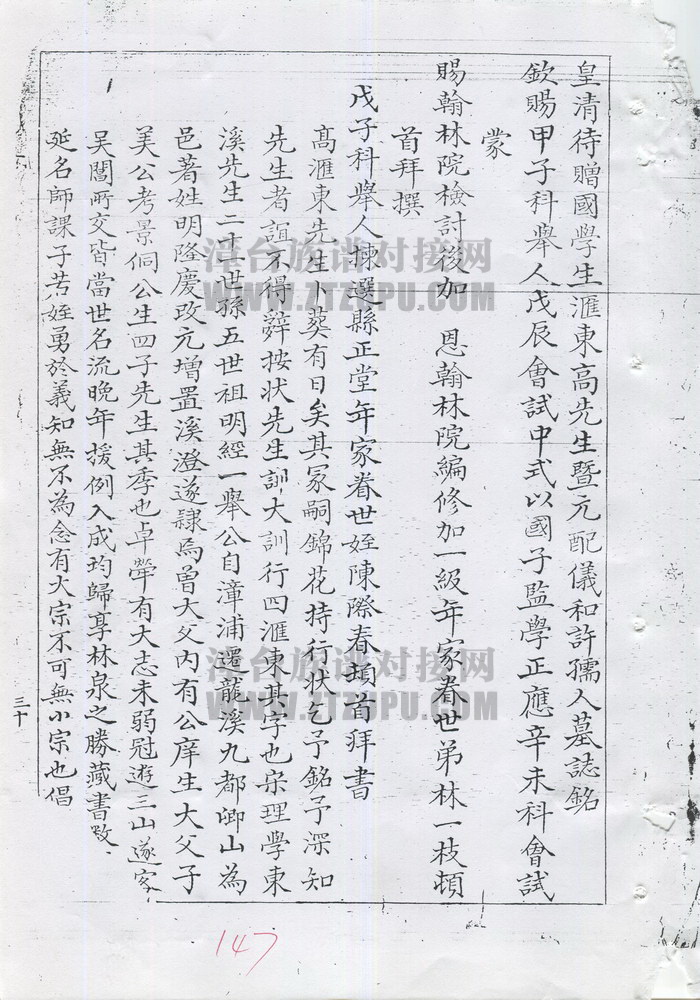 皇清待贈國學生滙東高先生暨元配儀和許孺人墓誌銘
欽賜甲子科舉人戊辰會試中式以國子監學正應辛未科會試
蒙
賜翰林院檢討後加 恩翰林院編修加一級年家眷世弟林一枝頓
首拜撰
戊子科舉人揀選縣正堂年家眷世姪陳際春頓首拜書
高滙東先生卜葬有日矣其冢嗣錦花持行状乞予銘予深知
先生者誼不得辭按状先生訓大訓行四滙東其字也宋理學東
溪先生二十世孫五世祖明經一舉公自漳浦遷龍溪九都卿山為
邑著姓明隆慶改元增置溪澄遂隸焉曾大父内有公庠生大父子
美公考景侗公生四子先生其季也卓犖有大志未弱冠遊三山遂客
吳閶所交皆當世名流晚年援例入成均歸享林泉之勝藏書教
延名師課子若姪勇於義知無不為念有大宗不可無小宗也倡
三十
147
津台族谱对接网
WWW.ZTZUPU.COM
津台族谱对接网
WWW.ZTZUPU.COM